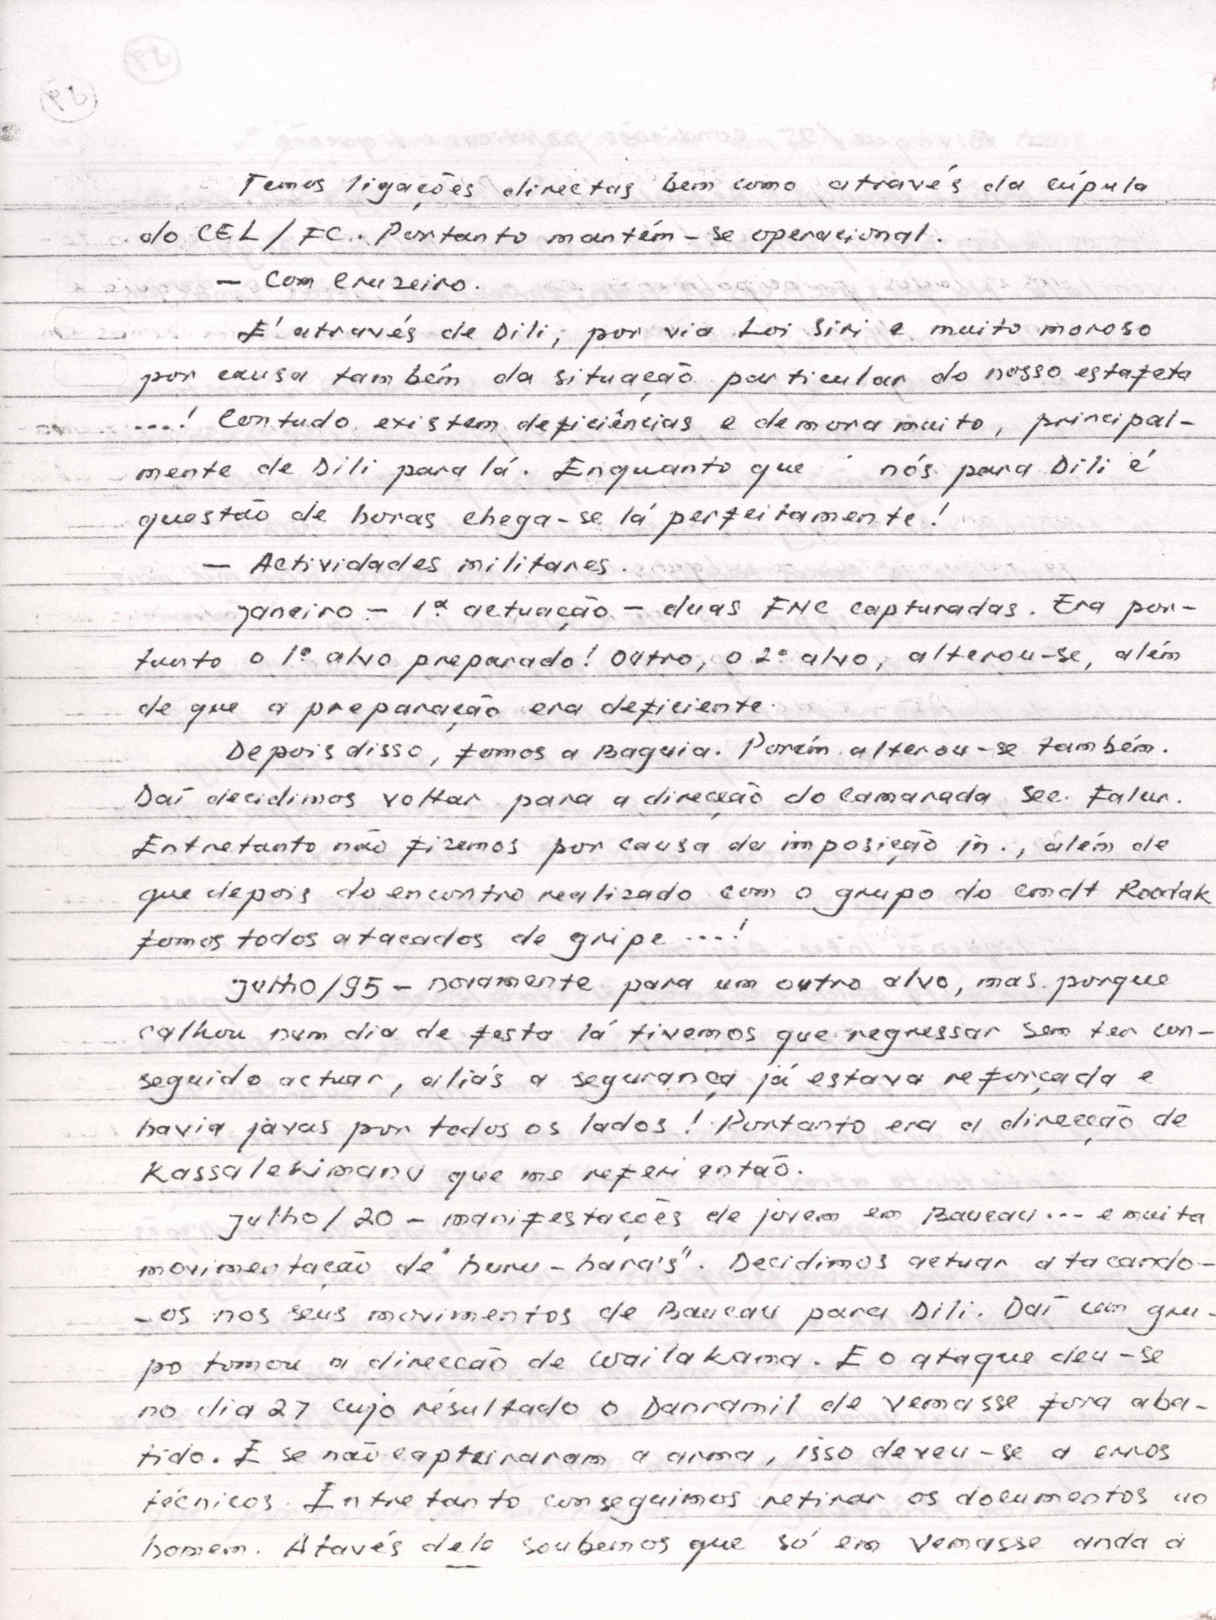 Temos ligações directas bem como através da cúpula
do CEL/FC. Portanto mantém-se operacional.
— Com Cruzeiro.
É através de Dili, por via Loi Siri e muito moroso
por causa também da situação particular do nosso estafeta
...! Contudo existem deficiências e demora muito, principal-
mente de Dili para lá. Enquanto que nós para Dili é
questão de horas chega-se lá perfeitamente!
— Actividades militares.
Janeiro - 1ª actuação - duas FNC capturadas. Era por-
tanto o 1º alvo preparado! Outro, o 2º alvo, alterou-se, além
de que a preparação era deficiente.
Depois disso, fomos a Baguia. Porém alterou-se também.
Daí decidimos voltar para a direcção do Camarada Sec. Falur.
Entretanto não fizemos por causa da imposição in., além de
que depois do encontro realizado com o grupo do Cmdt Rodak
fomos todos atacados de gripe ...!
Julho/95 - novamente para um outro alvo, mas porque
calhou num dia de festa lá tivemos que regressar sem ter con-
seguido actuar, aliás a segurança já estava reforçada e
havia javas por todos os lados! Portanto era a direcção de
Kassalekimanu que me referi então.
Julho/20 - manifestações de jovem em Baucau ... e muita
movimentação de "huru-hara's". Decidimos actuar atacando-
-os nos seus movimentos de Baucau para Dili. Daí um gru-
po tomou a direcção de Wailakama. E o ataque deu-se
no dia 27 cujo résultado o Danramil de Vemasse fora aba-
tido. E se não capturaram a arma, isso deveu-se a erros
técnicos. Entretanto conseguimos retirar os documentos ao
homem. Atavés dele soubemos que só em Vemasse anda à